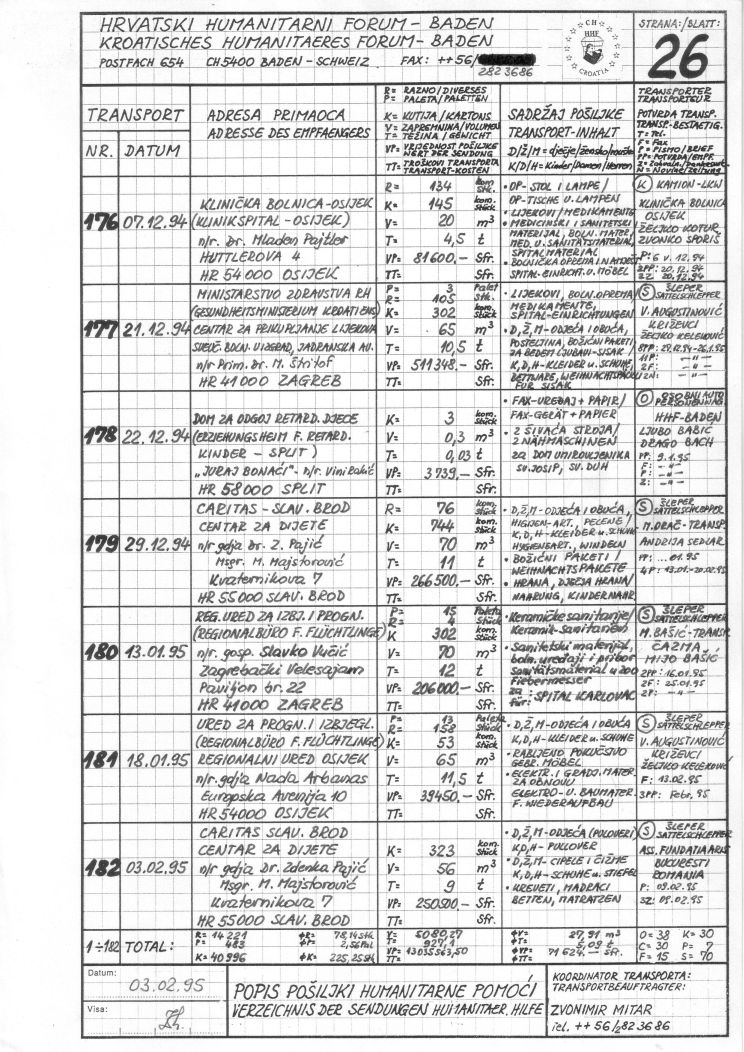 HRVATSKI HUMANITARNI FORUM - BADEN
KROATISCHES HUMANITAERES FORUM - BADEN
POSTFACH 654 CH 5400 BADEN - SCHWEIZ FAX: ++ 56/
282 36 86
CH
HHF
CROATIA
STRANA:/BLATT:
26
TRANSPORT
NR. DATUM
ADRESA PRIMAOCA
ADRESSE DES EMPFAENGERS
R= RAZNO/DIVERSES
P= PALETA/PALETTEN
K= KUTIJA/KARTONS
V= ZAPREMNINA/VOLUMEN
T= TEŽINA/GEWICHT
VP= VRIJEDNOST POŠILJKE
WERT DER SENDUNG
TT= TROŠKOVI TRANSPORTA
TRANSPORT-KOSTEN
SADRŽAJ POŠILJKE
TRANSPORT-INHALT
D/Ž/M = dječje/ženska/muške
K/D/H = Kinder/Damen/Herren
TRANSPORTER
TRANSPORTEUR
POTVRDA TRANSP.
TRANSP.-BESTAETIG.
T= Tel.
F= Fax
P= PISMO/BRIEF
PP= POTVRDA/EMPF.
Z= Zahvaln./Dankesurk.
N= Novine/Zeitung
176 07.12.94
KLINIČKA BOLNICA-OSIJEK
(KLINIKSPITAL - OSIJEK)
n/r. Dr. Mladen Pajtler
HUTTLEROVA 4
HR 54 000 OSIJEK
R= 134 kom. Stk.
K= 145 kom. Stück
V= 20 m³
T= 4,5 t
VP= 81600.- Sfr.
TT= Sfr.
• OP- STOL I LAMPE/
OP-TISCHE U. LAMPEN
• LIJEKOVI/MEDIKAMENTE
• MEDICINSKI I SANITETSKI
MATERIJAL, BOLN. MATER./
MED. U. SANITÄTSMATERIAL,
SPITALMATERIAL
• BOLNIČKA OPREMA I NAMJEŠT.
SPITAL-EINRICHT. U. MÖBEL
K KAMION-LKW
KLINIČKA BOLNICA
OSIJEK
ŽELJKO KOTUR
ZVONKO SPORIŠ
P: 6 v. 12.94
2PP: 20.12.94
2Z: 20.12.94
177 21.12.94
MINISTARSTVO ZDRAVSTVA RH
(GESUNDHEITSMINISTERIUM KROATIENS)
CENTAR ZA PRIKUPLJANJE LIJEKOVA
SVEUČ. BOLN. U IZGRAD., JADRANSKA AV.
n/r Prim. Dr. M. Štritof
HR 41 000 ZAGREB
P= 3 Palet
R= 105 Stk.
K= 302 kom. Stück
V= 65 m³
T= 10,5 t
VP= 511348.- Sfr.
TT= Sfr.
• LIJEKOVI, BOLN. OPREMA/
MEDIKAMENTE,
SPITAL-EINRICHTUNGEN
• D, Ž, M - ODJEĆA I OBUĆA,
POSTELJINA, BOŽIĆNI PAKETI
ZA BEDEM LJUBAVI-SISAK/
K, D, H - KLEIDER U. SCHUHE,
BETTWARE, WEIHNACHTSPAKETE
FÜR SISAK
S ŠLEPER
SATTELSCHLEPPER
V. AUGUSTINOVIĆ
KRIŽEVCI
ŽELJKO KELEKOVIĆ
11P: -"-
2F: -"-
2N: -"-
178 22.12.94
DOM ZA ODGOJ RETARD. DJECE
(ERZIEHUNGSHEIM F. RETARD.
KINDER - SPLIT)
"JURAJ BONAĆI" - n/r. Vini Rakić
HR 58000 SPLIT
K= 3 kom. Stück
V= 0,3 m³
T= 0,03 t
VP= 3739.- Sfr.
TT= Sfr.
• FAX-UREĐAJ + PAPIR/
FAX-GERÄT + PAPIER
• 2 ŠIVAĆA STROJA/
2 NÄHMASCHINEN
za DOM UMIROVLJENIKA
SV. JOSIP, SV. DUH
O OSOBNI AUTO
PERSONENWAG.
HHF-BADEN
LJUBO BABIĆ
DRAGO BACH
PP: 9.1.95
F: -"-
P: -"-
Z: -"-
179 29.12.94
CARITAS - SLAV. BROD
CENTAR ZA DIJETE
n/r gdja Dr. Z. Pajić
Msgr. M. Majstorović
Kvaternikova 7
HR 55 000 SLAV. BROD
R= 76 kom. Stück
K= 744 kom. Stück
V= 70 m³
T= 11 t
VP= 266500.- Sfr.
TT= Sfr.
• D, Ž, M - ODJEĆA I OBUĆA,
HIGIJEN-ART., PELENE/
K, D, H - KLEIDER u. SCHUHE
HYGIENEART., WINDELN
• BOŽIĆNI PAKETI/
WEIHNACHTSPAKETE
• HRANA, DJEČJA HRANA/
NAHRUNG, KINDERNAHR.
S ŠLEPER
SATTELSCHLEPPER
M. DRAČ-TRANSP.
ANDRIJA SEDLAR
PP: ... 01.95
4P: 13.01.-20.02.95
180 13.01.95
REG. URED ZA IZBJ. I PROGN.
(REGIONALBÜRO F. FLÜCHTLINGE)
n/r. gosp. Slavko Vučić
Zagrebački Velesajam
Paviljon br. 22
HR 41000 ZAGREB
P= 15 Paleta
R= 4 Stück
K 302 kom. Stück
V= 70 m³
T= 12 t
VP= 206000.- Sfr.
TT= Sfr.
• Keramičke sanitarije/
Keramik-Sanitäreien
• Sanitetski materijal,
boln. uređaji i pribor
Sanitätsmaterial u 200
Fiebermesser
za für: SPITAL KARLOVAC
S ŠLEPER
SATTELSCHLEPPER
M. BAŠIĆ-TRANSP.
ČAZMA
MIJO BAŠIĆ
2PP: 16.01.95
2F: 25.01.95
2P: -"-
181 18.01.95
URED ZA PROGN. I IZBJEGL.
(REGIONALBÜRO F. FLÜCHTLINGE)
REGIONALNI URED OSIJEK
n/r. gdja Nada Arbanas
Europska Avenija 10
HR 54000 OSIJEK
P= 13 Paleta
R= 158 Stück
K= 53 kom. Stück
V= 65 m³
T= 11,5 t
VP= 39450.- Sfr.
TT= Sfr.
• D, Ž, M - ODJEĆA I OBUĆA
K, D, H - KLEIDER u. SCHUHE
• RABLJENO POKUĆSTVO
GEBR. MÖBEL
• ELEKTR. I GRADJ. MATER.
ZA OBNOVU
ELEKTRO- U. BAUMATER.
F. WIEDERAUFBAU
S ŠLEPER
SATTELSCHLEPPER
V. AUGUSTINOVIĆ
KRIŽEVCI
ŽELJKO KELEKOVIĆ
F: 13.02.95
3PP: Febr. 95
182 03.02.95
CARITAS SLAV. BROD
CENTAR ZA DIJETE
n/r gdja Dr. Zdenka Pajić
Msgr. M. Majstorović
Kvaternikova 7
HR 55000 SLAV. BROD
K= 323 kom. Stück
V= 56 m³
T= 9 t
VP= 250900.- Sfr.
TT= Sfr.
• D, Ž, M - ODJEĆA (PULOVERI)
K, D, H - PULLOVER
• D, Ž, M - CIPELE I ČIZME
K, D, H - SCHUHE U. STIEFEL
• KREVETI, MADRACI
BETTEN, MATRATZEN
S ŠLEPER
SATTELSCHLEPPER
ASS. FUNDATIA ARKS
BUCURESTI
ROMANIA
P: 09.02.95
3Z: 09.02.95
1÷182 TOTAL:
R= 14 221 ΦR= 78,14 Stk
P= 483 ΦP= 2,56 Pal
K= 40 996 ΦK= 225,25 Stk
V= 5080,27
T= 927,1
VP= 13035563,50
TT=
ΦV= 27,91 m³
ΦT= 5,09 t
ΦVP= 71 624.- Sfr.
ΦTT=
O= 38 K= 30
C= 30 P= 7
F= 15 S= 70
Datum: 03.02.95
Visa:
POPIS POŠILJKI HUMANITARNE POMOĆI
VERZEICHNIS DER SENDUNGEN HUMANITAER. HILFE
KOORDINATOR TRANSPORTA:
TRANSPORTBEAUFTRAGTER:
ZVONIMIR MITAR
Tel. ++ 56/282 36 86